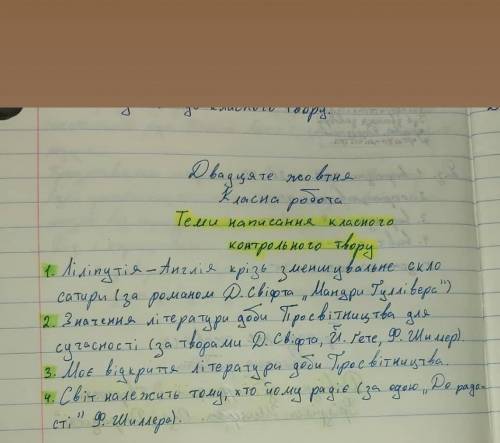 класного твору.
Двадцяте жовтня
Класна робота
Теми написання класного
контрольного твору
1. Ліліпутія – Англія крізь зменшувальне скло
сатири (за романом Д. Свіфта „Мандри Гуллівера")
2. Значення літератури доби Просвітництва для
сучасності (за творами Д. Свіфта, Й. Гете, Ф. Шиллер).
3. Моє відкриття літератури доби Просвітництва.
4. Світ належить тому, хто йому радіє (за одою „До радо-
сті" Ф. Шиллера).